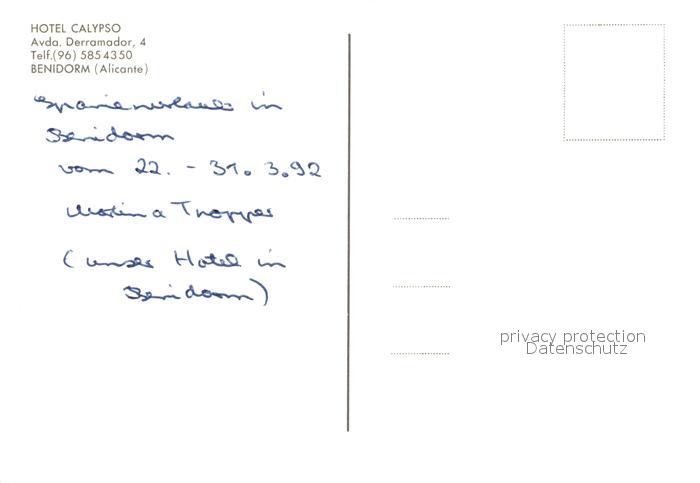 HOTEL CALYPSO
Avda. Derramador, 4
Telf.(96) 5854350
BENIDORM (Alicante)
Spanienurlaub in
Benidorm
vom 22. - 31. 3.92
Martina Tropper
(unser Hotel in
Benidorm)
privacy protection
Datenschutz